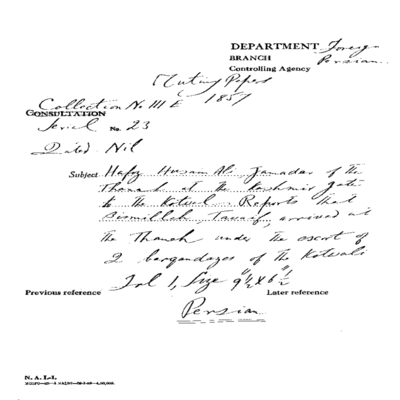 DEPARTMENT Foreign
BRANCH Persian
Controlling Agency
Mutiny Papers
Collection No III E 1857
CONSULTATION
Serial No. 23
Dated Nil
Subject Hafiz Husam Ali Jamadar of the
Thanah at the Kashmir gate
to the Kotwal. Reports that
Bismillah, Tawaif, arrived at
the Thanah under the escort of
2 barqandazes of the Kotwali
Fol 1, Size 9"½ x 6"½
Previous reference
Later reference
Persian
N. A. I.-1.